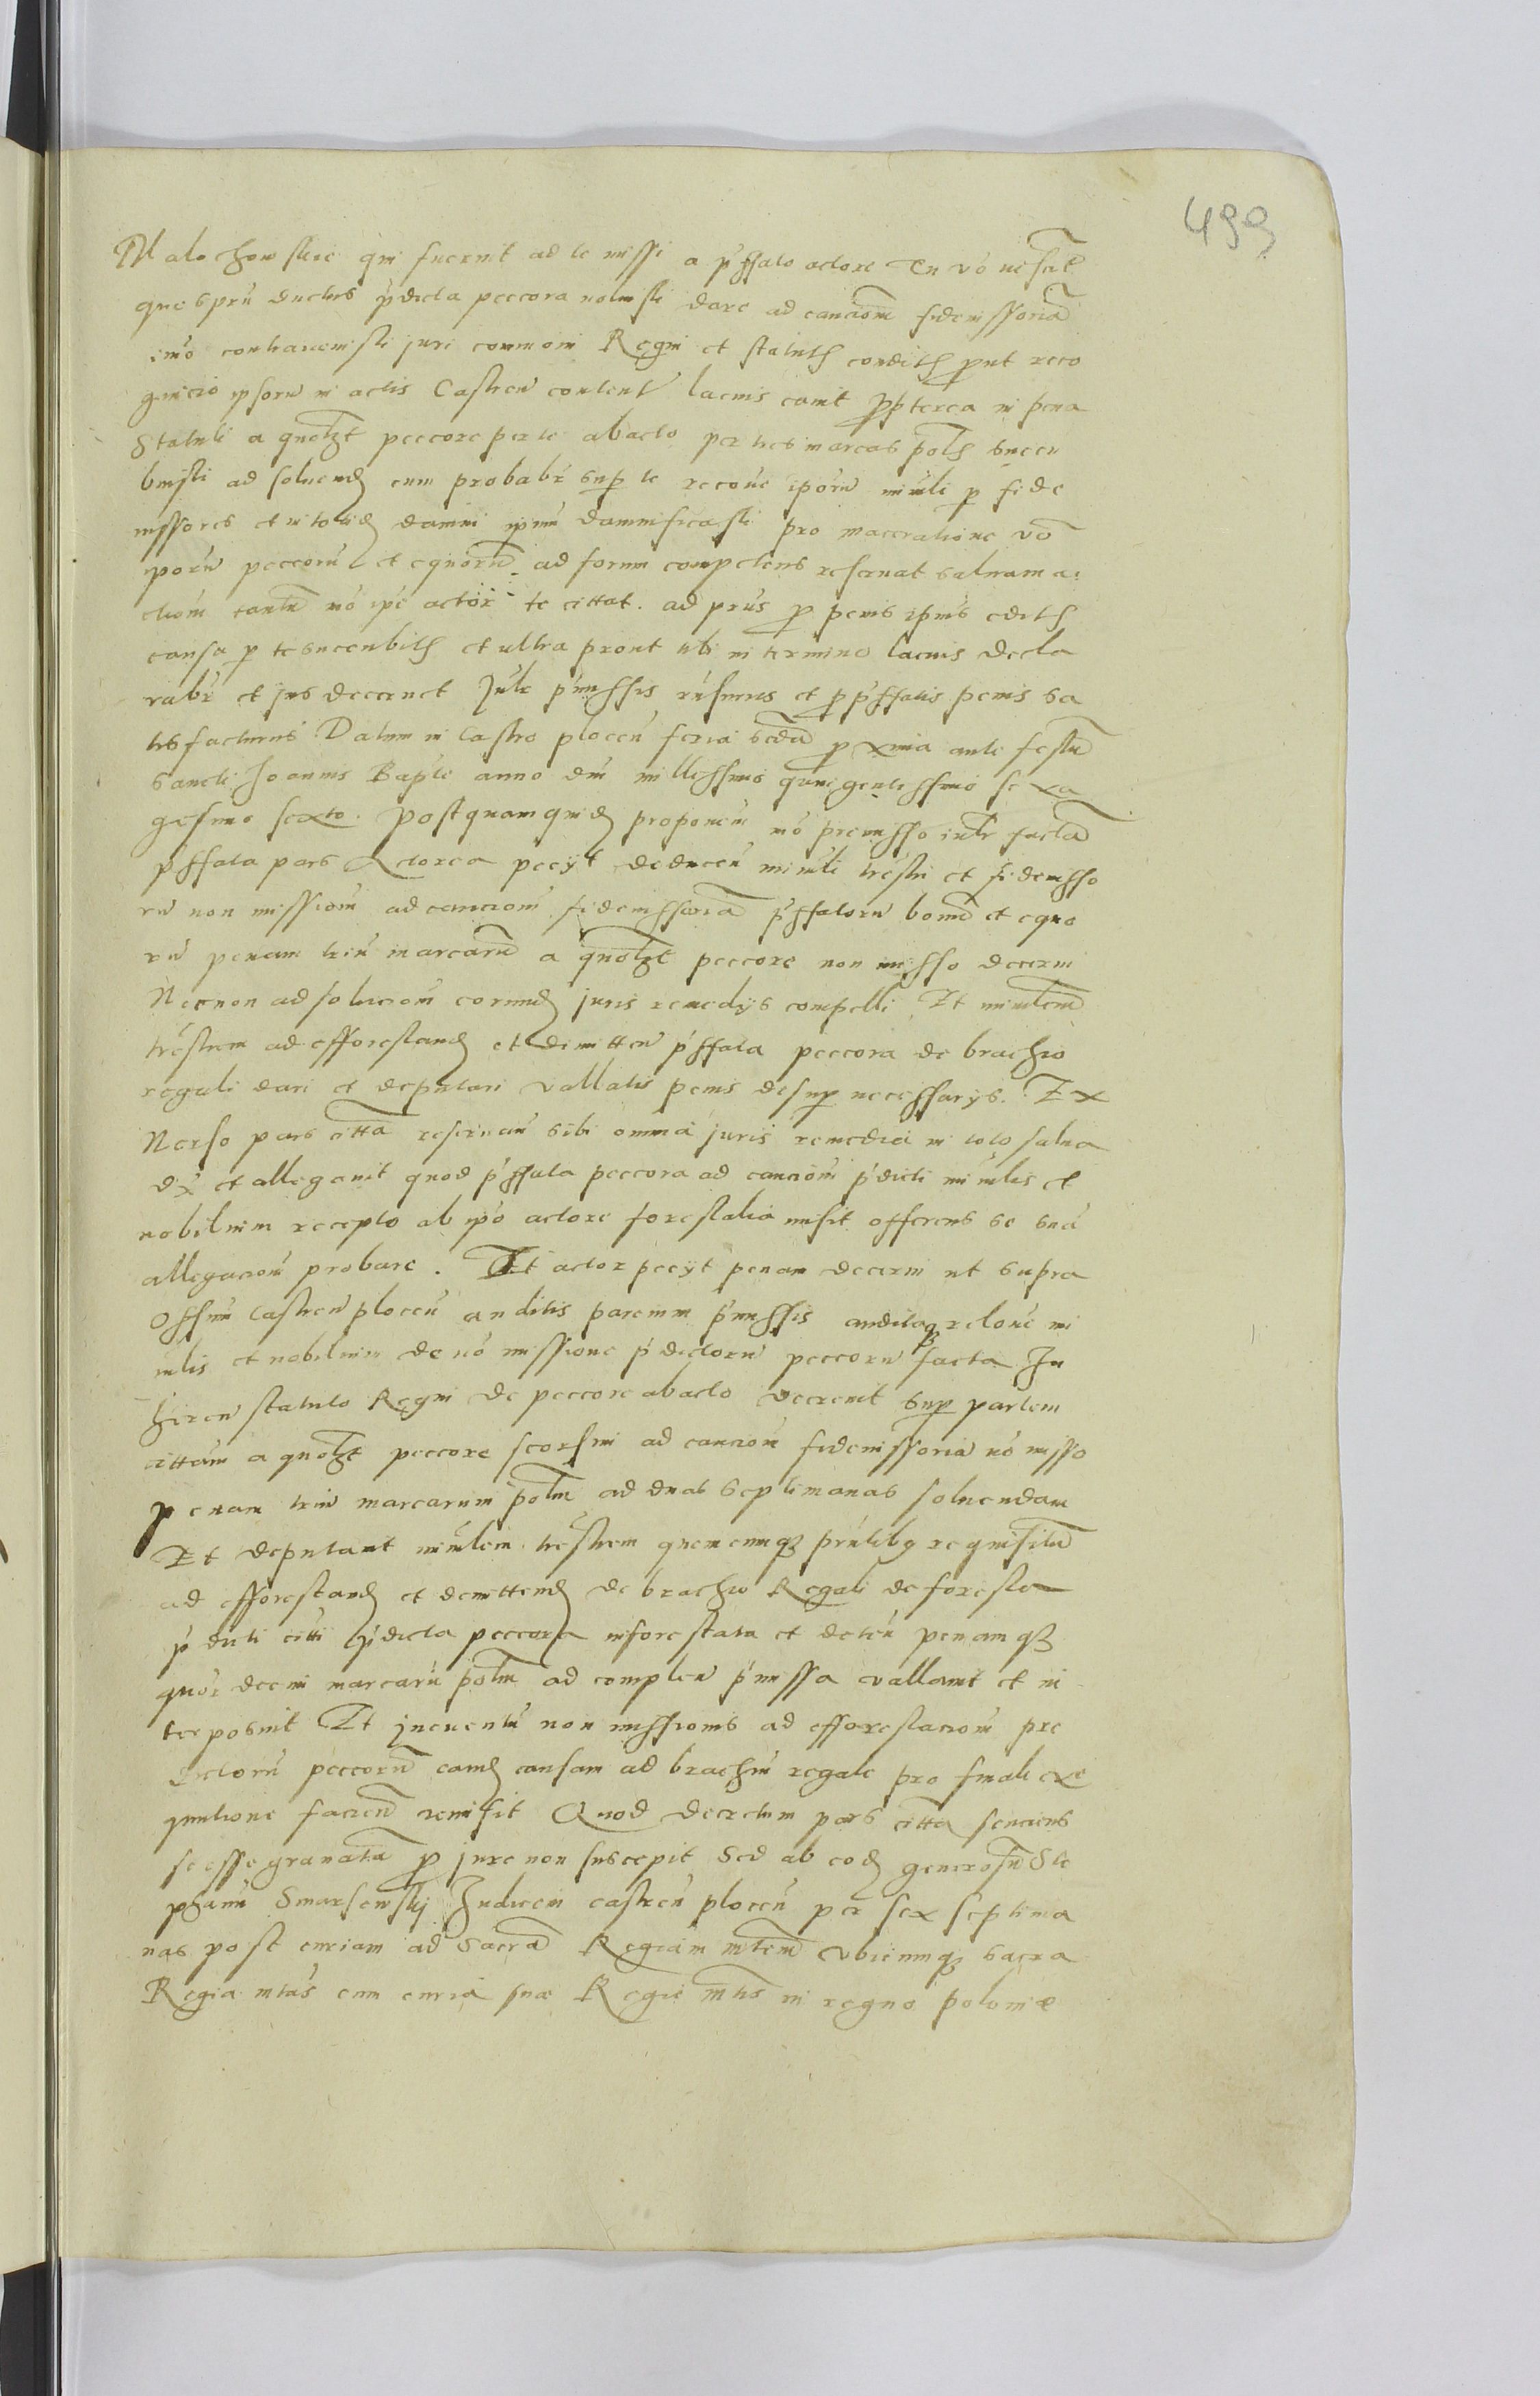 499
Malochowskie qui fuerunt ad te missi a pffato actore Tu vo nescit
quo spru ductus pdicta peccora noluisti dare ad caucion fideiussoria
imo contravenisti juri commoni Regni et statutis conditis prout reco
gnicio ipsoru in actis Castren content lacius canit propterea in pena
Statuti a quolzt peccore per te abacto per tres marcas pols succu
buisti ad soluend cum probabr sup te recone iporu miuli p fide
iussores et in totid damni ipum damnificasti pro maceratione vo
iporu peccoru et equoru ad forum competens reseruat saluam a
ction tantu no ipe actor te cittat ad prius p penis ipius editis
causa p te succubitis et ultra prout tibi in termino lacius decla
rabr et jus decernet Julr pmissis rnsurus et p pffatis penis sa
tisfacturus Datum in Castro plocen feria scda proxima ante festu
Sancti Joannis Bapte anno dni millesimo quingentesimo sexa
gesimo sexto. Postquam quid proponen mo premisso iudr facta
pffata pars Actorea peciit deducen miuli trestri et fideiusso
ru non mission ad caucion fideiussoria pffatoru bouu et equo
ru penam triu marcaru a quolzt peccore non misso decerni
Necnon ad solucion eorund juris remediis compelli Et miulem
trestrem ad efforestand et dimitten pffata peccora de brachio
regali dari et deputari vallatis penis desup necessariis. Ex
Uerso pars citta reseruan sibi omnia juris remedia in toto salua
dx et allegauit quod pffata peccora ad caucion pdicti miulis et
nobilium recepto ab ipo actore forestalia misit offerens se sua
allegacion probare. Et actor peciit penam decerni ut supra
Offim Castren plocen auditis parcium pmissis auditaq relone mi
iulis et nobilium de no missione pdictoru peccoru facta In
heren statuto Regni de peccore abacto decreuit sup partem
cittam a quolzt peccore seorsim ad caucion fideiussoria no misso
penam triu marcarum polm ad duas septimanas soluendam
Et deputauit miulem trestrem quemcumq prutibq requisitu
ad efforestand et demittend de brachio Regali de foresta
pdicti citti pdicta peccora inforestata et deten penamq
quor decim marcaru polm ad complen pmissa vallauit et in
terposuit Et ineuentu non missionis ad efforestacion pre
dictoru peccoru eand causam ad brachiu regale pro finali exe
qutione faciend remisit Quod decretum pars citta senciens
se esse grauata p jure non suscepit Sed ab eod generosu Ste
phanu Smarsewskij Judicem castren plocen per sex septima
nas post curiam ad Sacra Regiam mtem vbicumq sacra
Regia mtas cum curia sua Regie mtis in regno poloniae